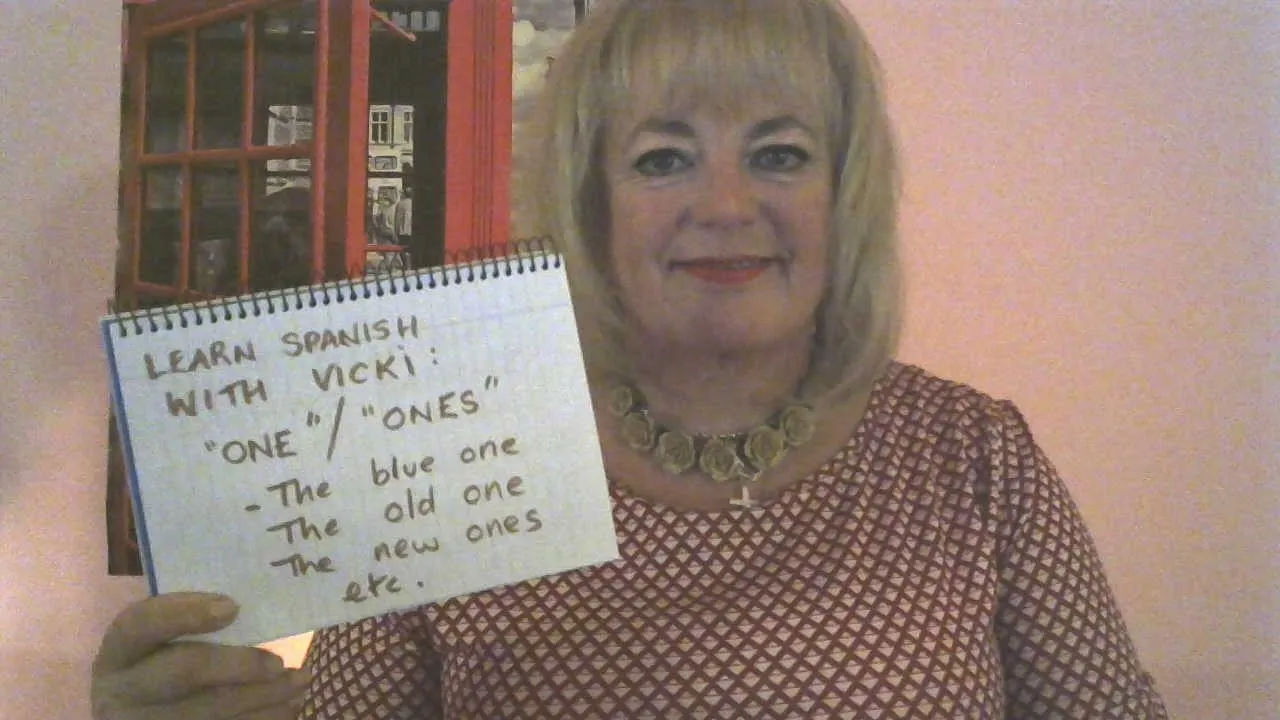 LEARN SPANISH
WITH VICKI:
"ONE"/"ONES"
- The blue one
The old one
The new ones
etc.